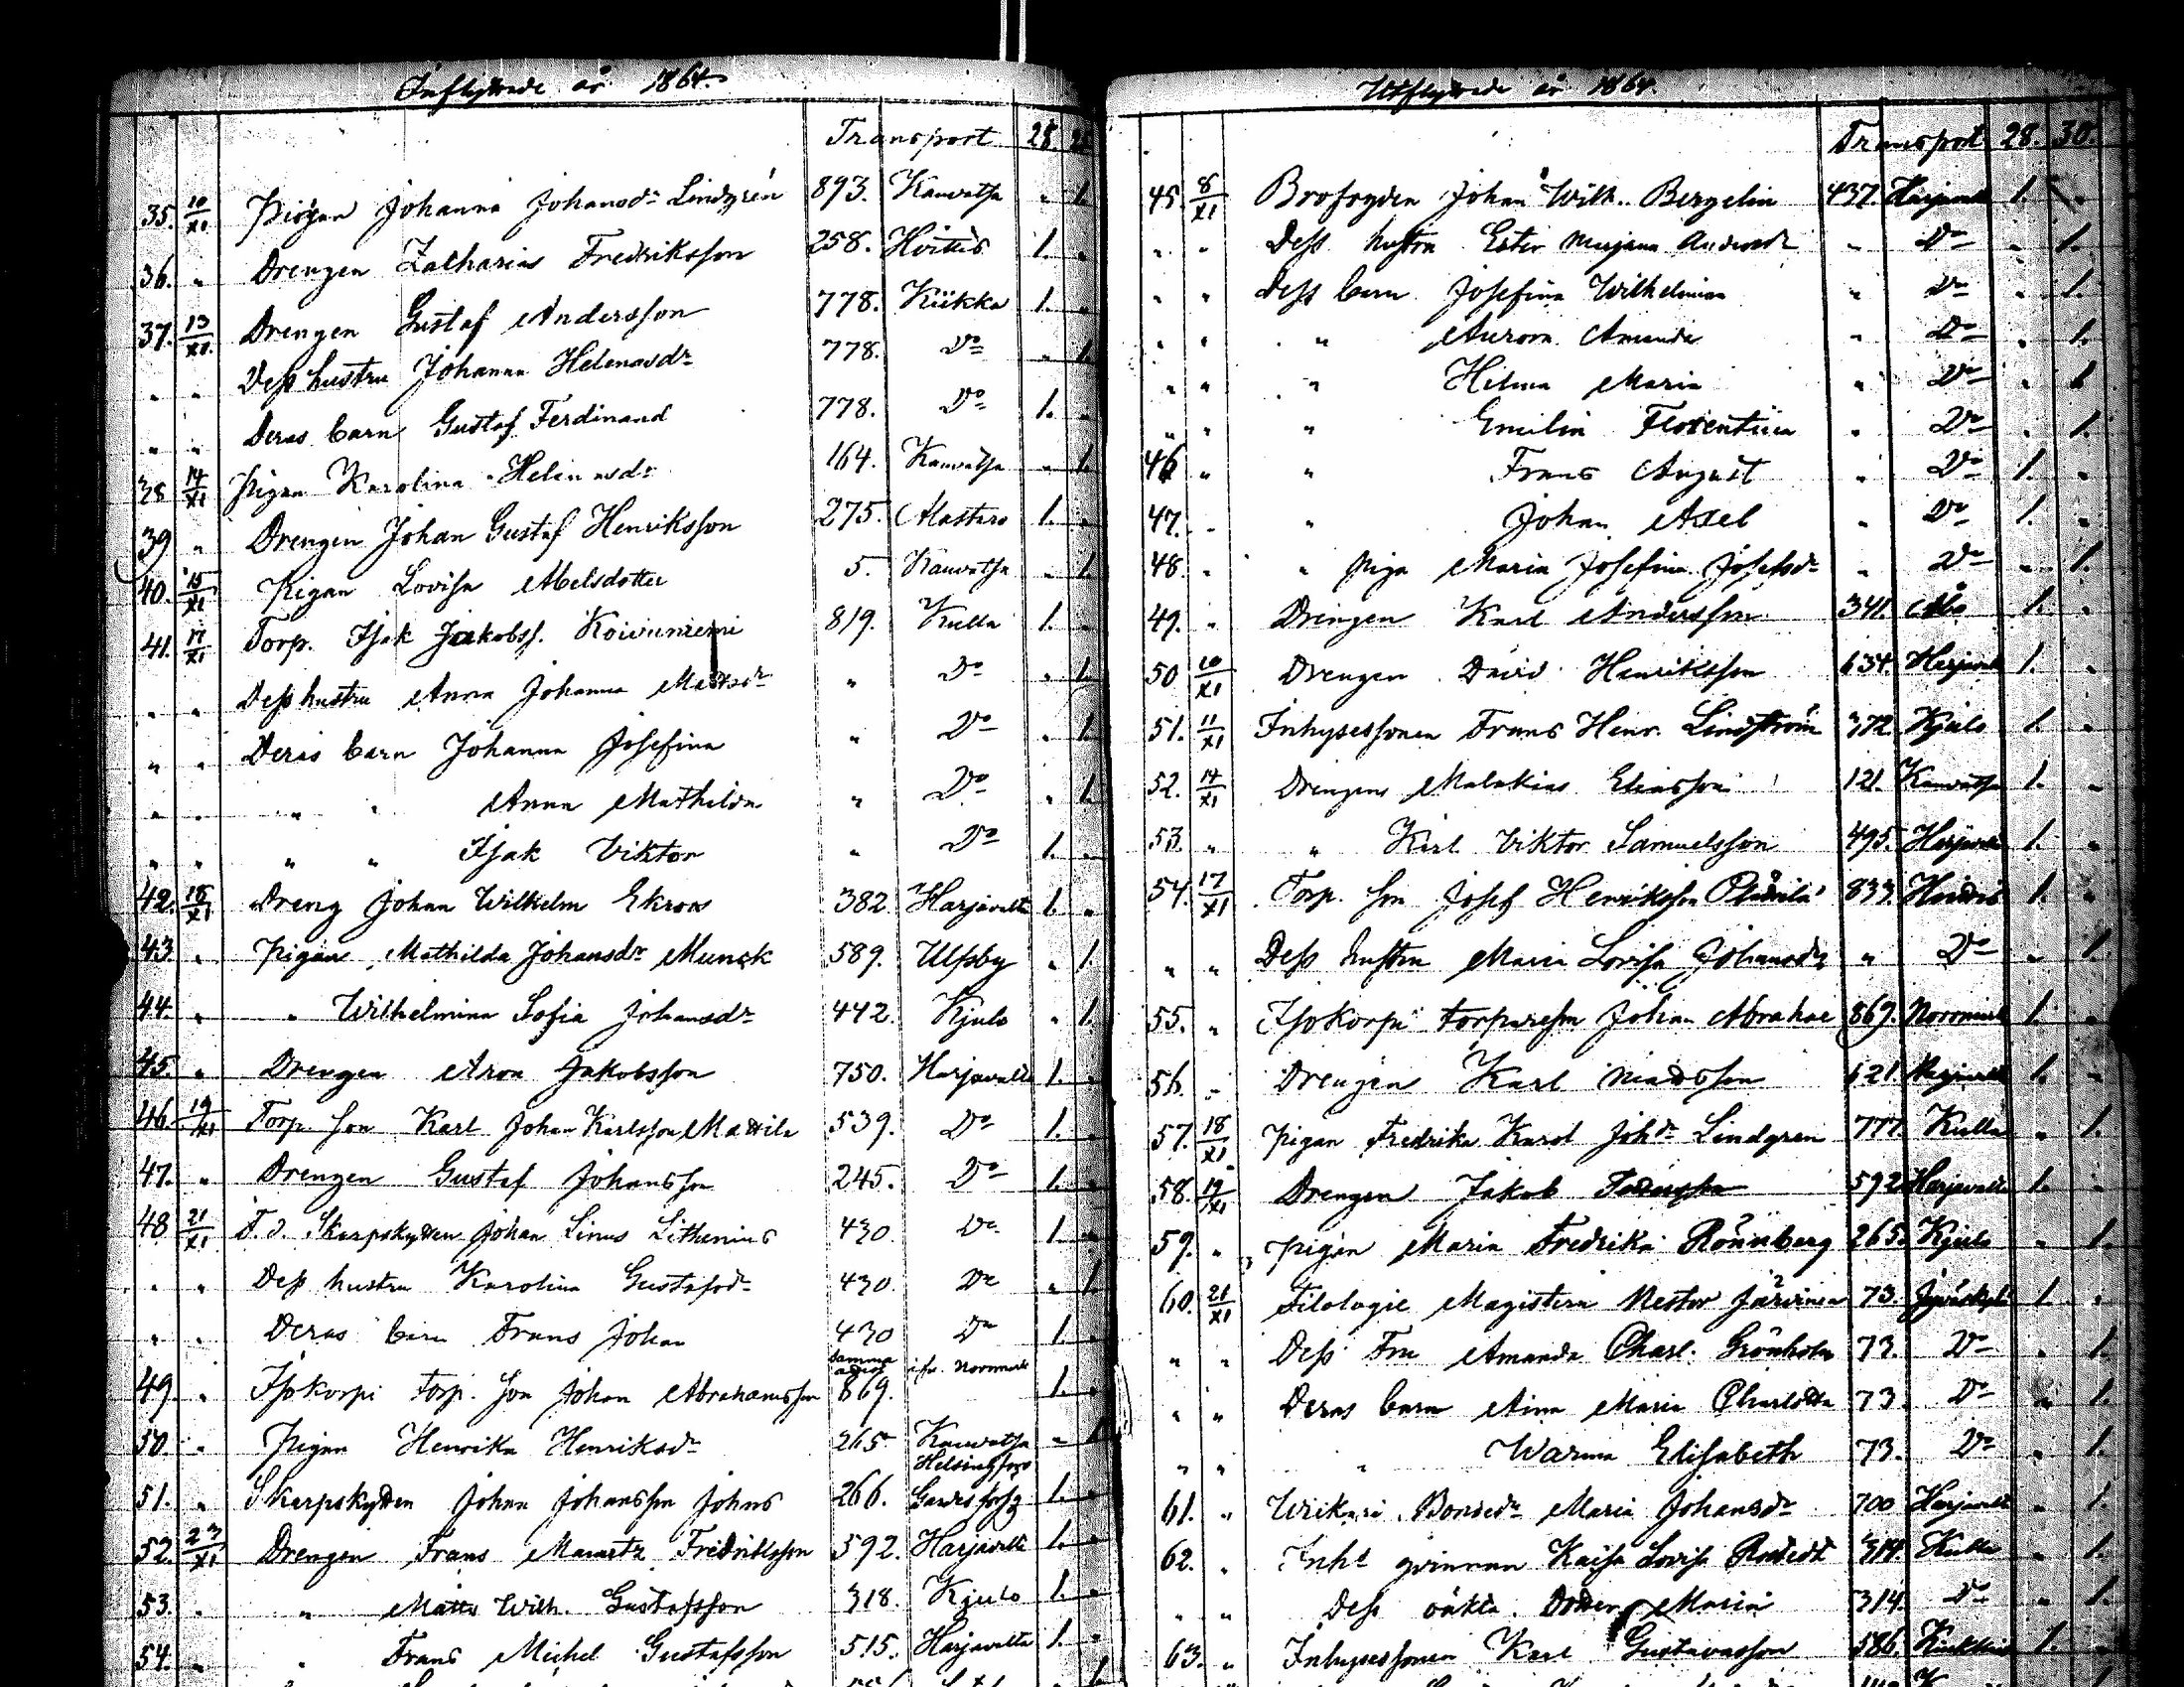 Inflyttade år 1864.
Transport 28. 25
35. 10/XI Pigan Johanna Johansdr Lindgrén 893. Kauvatsa " 1.
36. " Drengen Zacharias Fredriksson 258. Hvittis 1. "
37. 13/XI Drengen Gustaf Andersson 778. Kiikka 1. "
" " Dess hustru Johanna Helenasdr 778. Do " 1.
" " Deras barn Gustaf Ferdinand 778. Do 1. "
38 14/XI Pigan Karolina Helenasdr 164. Kauvatsa " 1.
39 " Drengen Johan Gustaf Henriksson 275. Alastaro 1. "
40. 15/XI Pigan Lovisa Abelsdotter 5. Kauvatsa " 1.
41. 17/XI Torp. Isak Jakobss. Koivuniemi 819. Kulla 1. "
" " Dess hustru Anna Johanna Mattsdr " Do " 1.
" " Deras barn Johanna Josefina " Do " 1.
" " " " Anna Mathilda " Do " 1.
" " " " Isak Viktor " Do 1. "
42. 18/XI Dreng Johan Wilhelm Ekroos 382. Harjavalta 1. "
43. " Pigan Mathilda Johansdr Munck 589. Ulfsby " 1.
44. " " Wilhelmina Sofia Johansdr 442. Kjulo " 1.
45. " Drengen Aron Jakobsson 750. Harjavalta 1. "
46. 19/XI Torp. son Karl Johan Karlsson Mattila 539. Do 1. "
47. " Drengen Gustaf Johansson 245. Do 1. "
48 21/XI F. d. Skarpskytten Johan Linus Lithenius 430. Do 1. "
" " Dess hustru Karolina Gustafsdr 430. Do " 1.
" " Deras barn Frans Johan 430 Do 1. "
49. " Isokorpi torp. son Johan Abrahamsson samma 869. ifr. Norrmark 1.
50. " Pigan Henrika Henriksdr 265 Kauvatsa " 1.
51. " Skarpskytten Johan Johansson Johns 266. Helsingfors 1. "
52. 23/XI Drengen Frans Mauritz Fredriksson 592. Harjavalta 1. "
53. " " Matts Wilh. Gustafsson 318. Kjulo 1. "
54. " " Frans Michel Gustafsson 515. Harjavalta 1. "
Utflyttade år 1864.
Transport. 28. 30.
45. 8/XI Brofogden Johan Wilh. Bergelin 437. Harjavalta 1. "
" " Dess hustru Ester Marjana Andersdr " Do " 1.
" " Dess barn Josefina Wilhelmina " Do " 1.
" " " Aurora Amanda " Do " 1.
" " " Hilma Maria " Do " 1
" " " Emilia Florentina " Do " 1.
46 " " Frans August " Do 1. "
47. " " Johan Axel " Do 1. "
48. " " Piga Maria Josefina Josefsdr " Do " 1.
49. " Drengen Karl Andersson 341. Åbo 1. "
50 10/XI Drengen David Henriksson 634. Harjavalta 1. "
51. 11/XI Inhysessonen Frans Henr. Lindström 372. Kjulo 1. "
52. 14/XI Drengen Malakias Eliasson 121. Kauvatsa 1. "
53. " " Karl Viktor Samuelsson 495. Harjavalta 1. "
54. 17/XI Torp. son Josef Henriksson 833. 1. "
" " Dess hustru Maria Lovisa Johansdr " Do " 1.
55. " Isokorpi torpareson Johan Abraha 869. Norrmark 1. "
56. " Drengen Karl Mattsson 621. Harjavalta 1. "
57. 18/XI Pigan Fredrika Karol. Johdr Lindgren 777. Kulla " 1.
58. 19/XI Drengen Jakob 592. Harjavalta 1. "
59. " Pigan Maria Fredrika Rönnberg 265. Kjulo " 1.
60. 21/XI Filologie Magistern Nestor Järvinen 73. Jyväskylä 1. "
" " Dess Fru Amanda Charl. Grönholm 73. Do " 1.
" " Deras barn Aina Maria Charlotta 73. Do " 1.
" " " Warma Elisabeth 73. Do " 1.
61. " Wirkari Bondedr Maria Johansdr 700 Harjavalta " 1.
62. " Inhs qvinnan Kaisa Lovisa 314. Kulla " 1.
" " Dess oäkta Dotter Maria 314. Do " 1.
63. " Inhysessonen Karl Gustavasson 586. 1. "